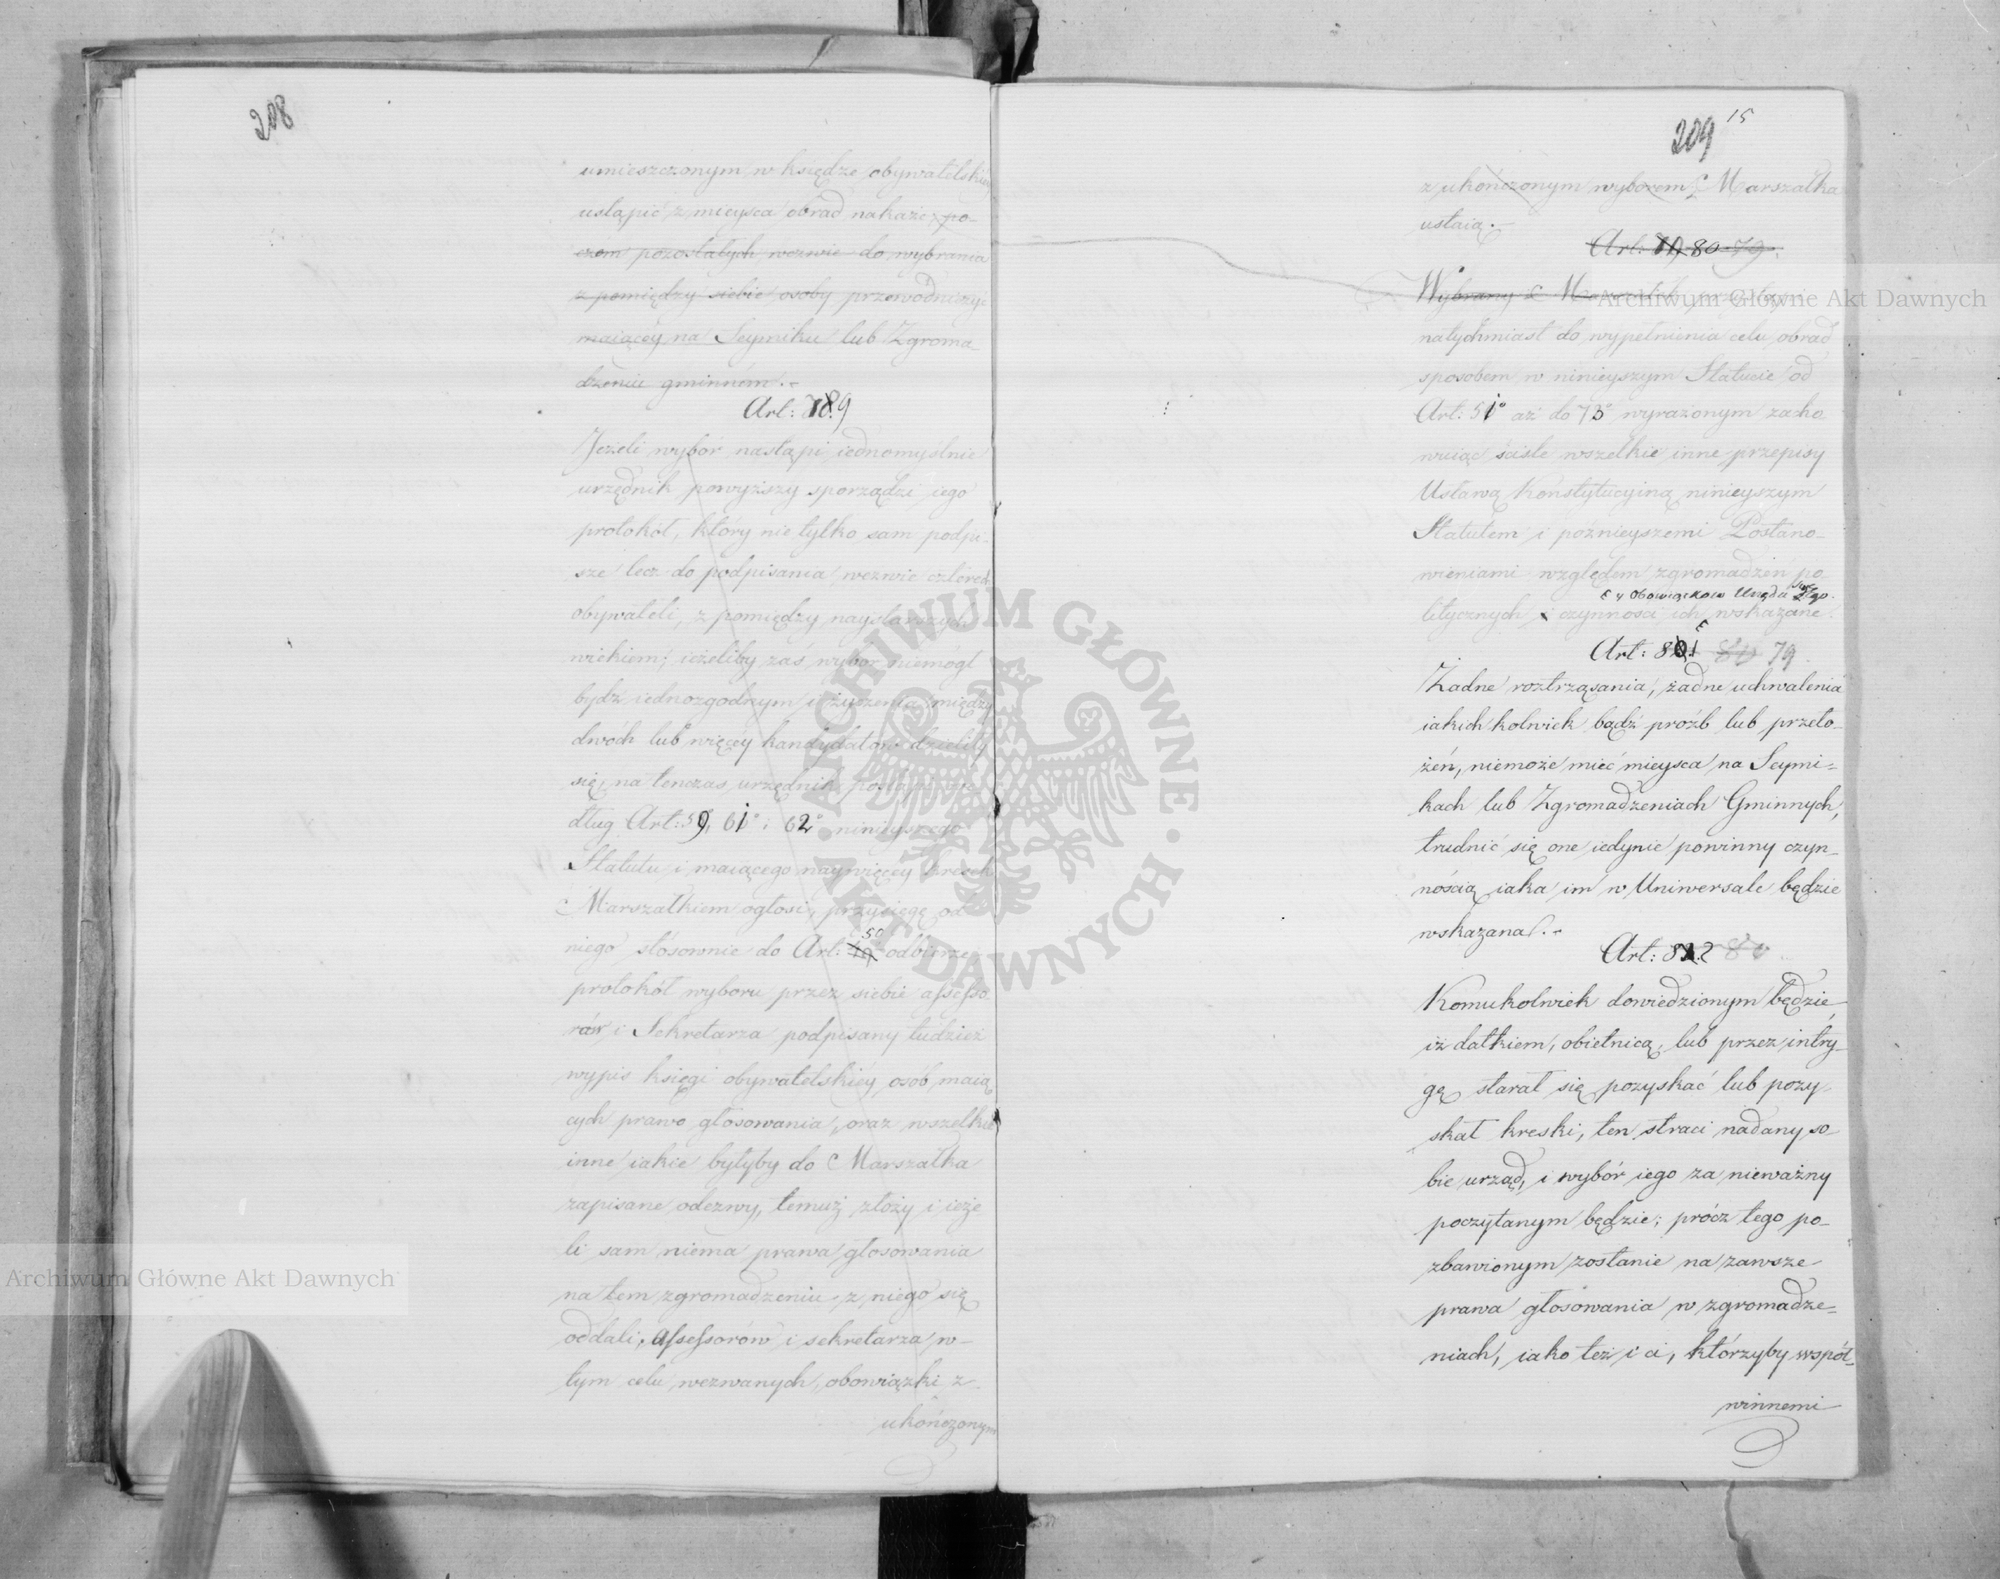 208
umieszczonym w księdze obywatelskiey
ustąpić z mieysca obrad nakaże, po-
czém pozostałych wezwie do wybrania
z pomiędzy siebie osoby przewodniczyć
maiącéy na Seymiku lub Zgroma-
dzeniu gminném.
Art: 789
Jeżeli wybór nastąpi iednomyślnie
urzędnik powyższy sporządzi iego
protokół, który nie tylko sam podpi-
sze lecz do podpisania wezwie czterech
obywateli, z pomiędzy naystarszych
wiekiem; ieżeliby zaś wybór niemógł
bydź iednozgodnym i życzenia między
dwóch lub więcéy kandydatów dzieliły
się, na tenczas urzędnik postąpi we-
dług Art: 59, 61° i 62° ninieyszego
Statutu i maiącego naywięcéy kresek
Marszałkiem ogłosi, przysięgę od
niego stósownie do Art: 49 50 odbierze
protokół wyboru przez siebie assesso-
rów i Sekretarza podpisany tudzież
wypis księgi obywatelskiéy osób maią-
cych prawo głosowania, oraz wszelkie
inne iakie byłyby do Marszałka
zapisane odezwy, temuż złoży i ieże-
li sam niema prawa głosowania
na tem zgromadzeniu, z niego się
oddali, Assessorów i sekretarza w-
tym celu wezwanych, obowiązki z
ukończonym
209 15
z ukończonym wyborem Marszałka
ustaią.
Art: 80 79.
Wybrany Marszałek przystąpi
natychmiast do wypełnienia celu obrad
sposobem w ninieyszym Statucie od
Art: 51° aż do 73° wyrażonym zacho
wuiąc ściśle wszelkie inne przepisy
Ustawą Konstytucyiną ninieyszym
Statutem i poźnieyszemi Postano-
wieniami względem zgromadzeń po-
y obowiązkow Urzędu swego
litycznych i czynności ich wskazane.
Art: 81 80 79
Żadne roztrząsania, żadne uchwalenia
iakichkolwiek bądź próźb lub przeło-
żeń, niemoże mieć mieysca na Seymi-
kach lub Zgromadzeniach Gminnych,
trudnić się one iedynie powinny czyn-
nością iaka im w Uniwersale będzie
wskazana.
Art: 82 80
Komukolwiek dowiedzionym będzie
iż datkiem, obietnicą, lub przez intry-
gę starał się pozyskać lub pozy-
skał kreski, ten straci nadany so-
bie urząd, i wybór iego za nieważny
poczytanym będzie; prócz tego po-
zbawionym zostanie na zawsze
prawa głosowania w zgromadze-
niach, iako też i ci, którzyby współ-
winnemi
Archiwum Główne Akt Dawnych
Archiwum Główne Akt Dawnych
ARCHIWUM GŁÓWNE AKT DAWNYCH